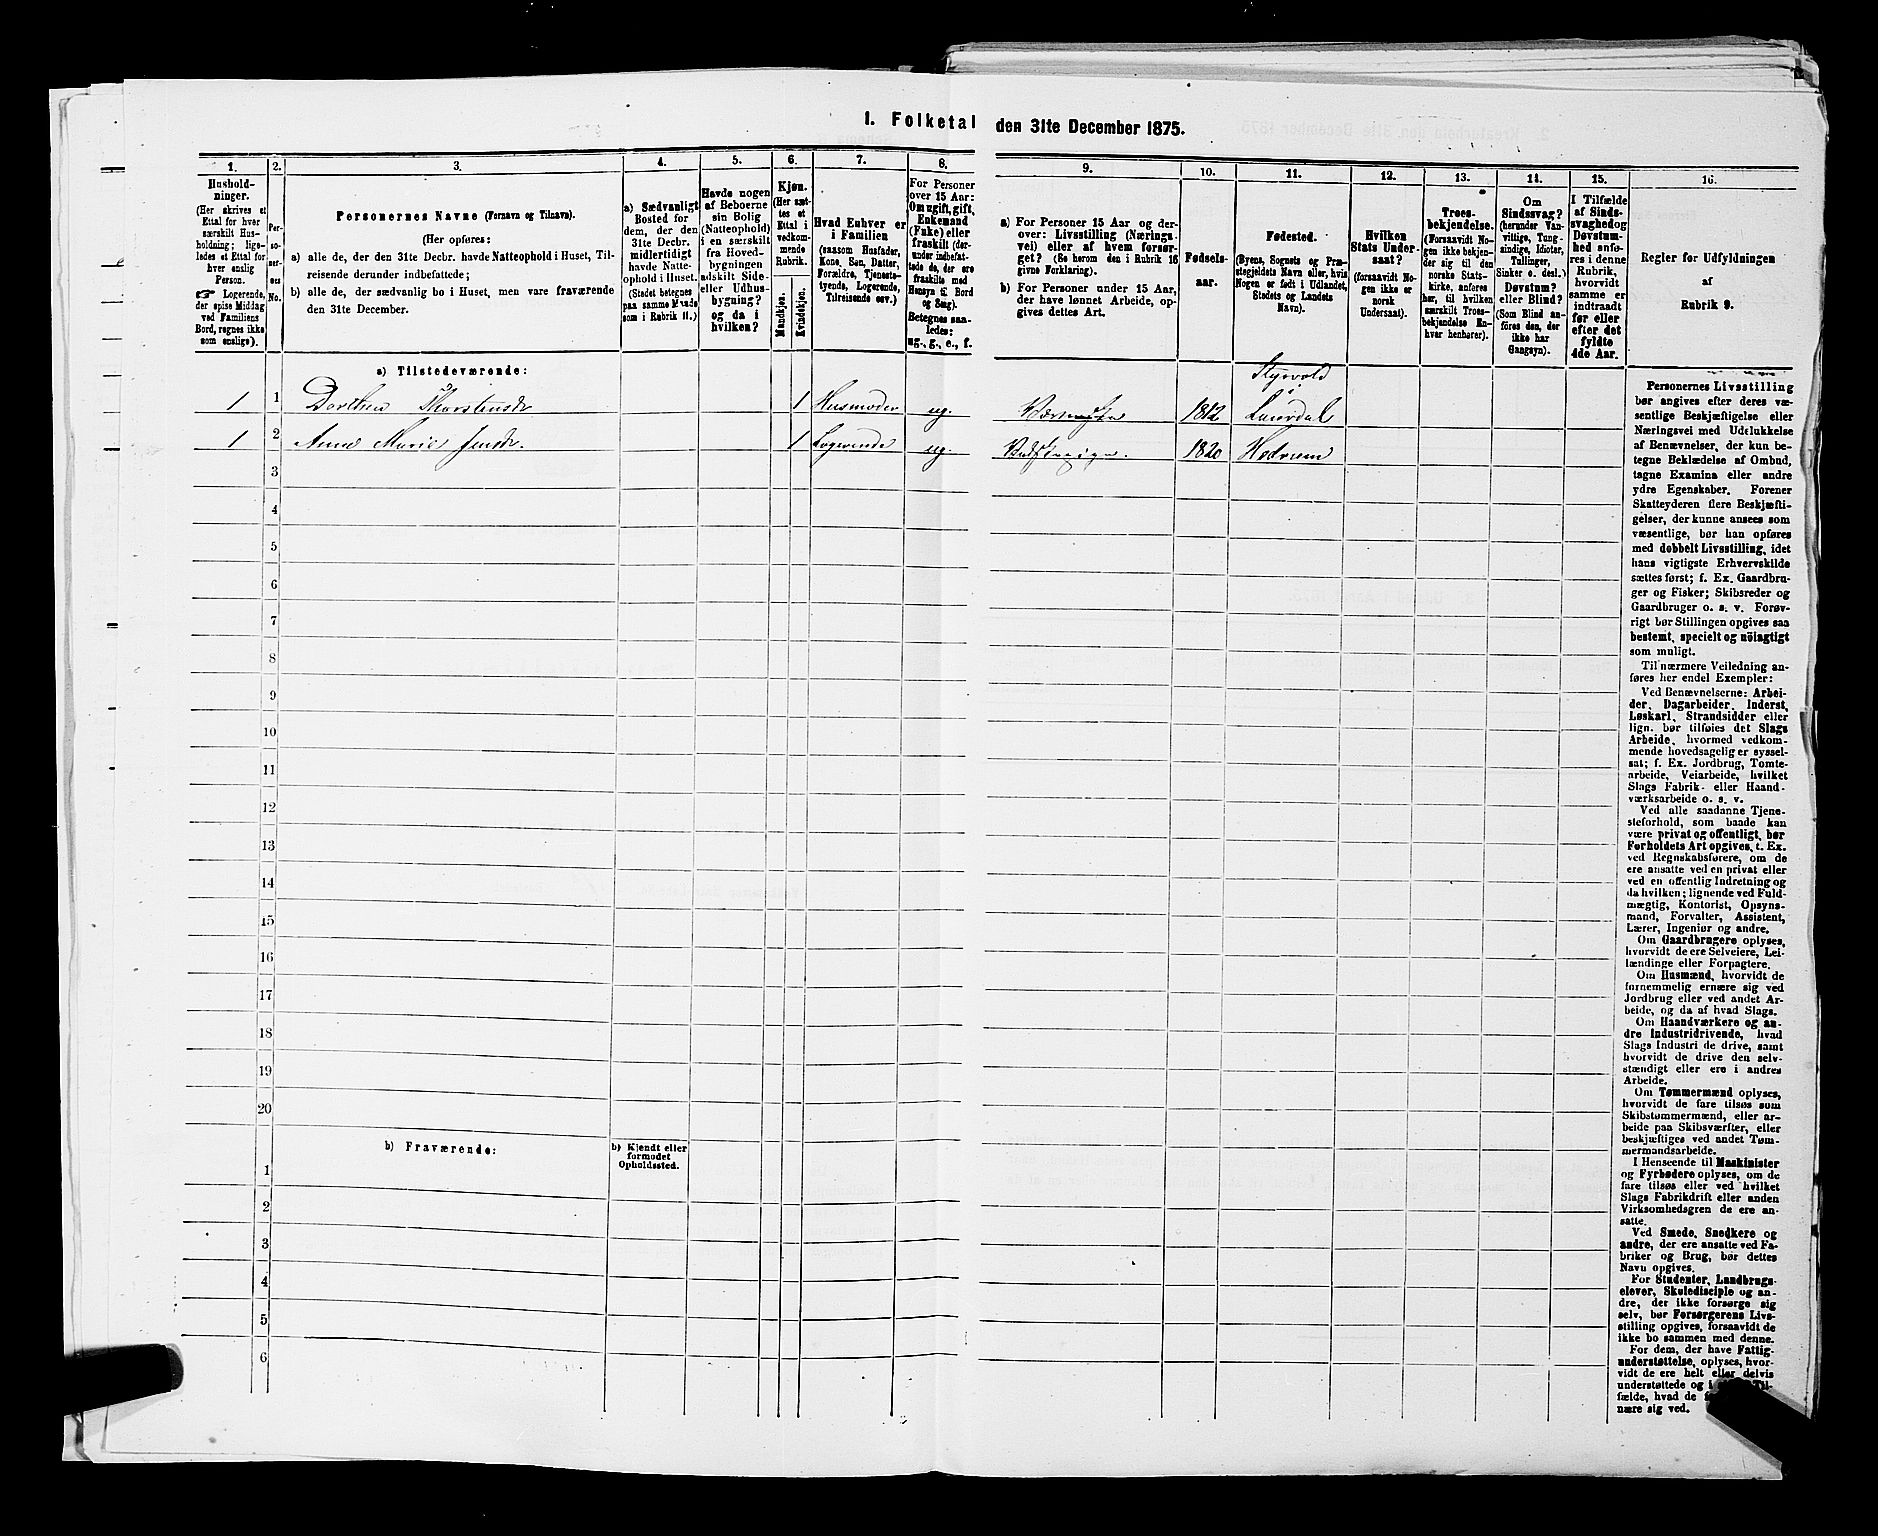 I. Folketal den 31te December 1875.
1.
Hushold-
ninger.
(Her skrives et
Ettal for hver
særskilt Hus-
holdning; lige-
ledes et Ettal for
hver enslig
Person.
☞ Logerende,
der spise Middag
ved Familiens
Bord, regnes ikke
som enslige).
2.
Per-
so-
ner-
nes
No.
3.
Personernes Navne (Fornavn og Tilnavn).
(Her opføres:
a) alle de, der den 31te Decbr. havde Natteophold i Huset, Til-
reisende derunder indbefattede;
b) alle de, der sædvanlig bo i Huset, men vare fraværende
den 31te December.
4.
a) Sædvanligt
Bosted for
dem, der den
31te Decbr.
midlertidigt
havde Natte-
ophold i Huset.
(Stedet betegnes
paa samme Maade
som i Rubrik 11.)
5.
Havde nogen
af Beboerne
sin Bolig
(Natteophold)
i en særskilt
fra Hoved-
bygningen
adskilt Side-
eller Udhus-
bygning?
og da i
hvilken?
6.
Kjøn.
(Her sæt-
tes et
Ettal i
vedkom-
mende
Rubrik.
Mandkjøn.
Kvindekjøn.
7.
Hvad Enhver er
i Familien
(saasom Husfader,
Kone, Søn, Datter,
Forældre, Tjeneste-
tyende, Logerende,
Tilreisende osv.)
8.
For Personer
over 15 Aar:
Om ugift, gift,
Enkemand
(Enke) eller
fraskilt (der-
under indbefat-
tede de, der ere
fraskilte med
Hensyn til Bord
og Seng).
Betegnes saa-
ledes:
ug., g., e., f.
9.
a) For Personer 15 Aar og der-
over: Livsstilling (Nærings-
vei) eller af hvem forsør-
get? (Se herom den i Rubrik 16
givne Forklaring).
b) For Personer under 15 Aar,
der have lønnet Arbeide, op-
gives dettes Art.
10.
Fødsels-
aar.
11.
Fødested.
(Byens, Sognets og Præ-
stegjeldets Navn eller, hvis
Nogen er født i Udlandet,
Stedets og Landets
Navn).
12.
Hvilken
Stats Under-
saat?
(forsaavidt No-
gen ikke er
norsk
Undersaat).
13.
Troes-
bekjendelse.
(Forsaavidt No-
gen ikke bekjen-
der sig til den
norske Stats-
kirke, anføres
her, til hvilken
særskilt Troes-
bekjendelse En-
hver henhører).
14.
Om
Sindssvag?
(herunder Van-
vittige, Tung-
sindige, Idioter,
Tullinger,
Sinker o. desl.)
Døvstum?
eller Blind?
(Som Blind an-
føres den, der
ikke har
Gangsyn).
15.
I Tilfælde
af Sinds-
svaghed og
Døvstum-
hed anfø-
res i denne
Rubrik,
hvorvidt
samme er
indtraadt
før eller
efter det
fyldte
4de Aar.
16.
Regler for Udfyldningen
af
Rubrik 9.
a) Tilstedeværende:
1 1 Dorthea Thorstensdr 1 Husmoder ug. 1812 Styrvold i Laurdal
1 2 Anne Marie Jensdr. 1 Logerende ug. 1820 Hedrum
3
4
5
6
7
8
9
10
11
12
13
14
15
16
17
18
19
20
b) Fraværende:
b) Kjendt eller
formodet
Opholdssted.
1
2
3
4
5
6
Personernes Livsstilling
bør angives efter deres væ-
sentlige Beskjæftigelse eller
Næringsvei med Udelukkelse
af Benævnelser, der kun be-
tegne Beklædelse af Ombud,
tagne Examina eller andre
ydre Egenskaber. Forener
Skatteyderen flere Beskjæfti-
gelser, der kunne ansees som
væsentlige, bør han opføres
med dobbelt Livsstilling, idet
hans vigtigste Erhvervskilde
sættes først; f. Ex. Gaardbru-
ger og Fisker; Skibsreder og
Gaardbruger o. s. v. Forøv-
rigt bør Stillingen opgives saa
bestemt, specielt og nöiagtigt
som muligt.
Til nærmere Veiledning an-
føres her endel Exempler:
Ved Benævnelserne: Arbei-
der, Dagarbeider, Inderst,
Løskarl, Strandsidder eller
lign. bør tilføies det Slags
Arbeide, hvormed vedkom-
mende hovedsagelig er syssel-
sat; f. Ex. Jordbrug, Tomte-
arbeide, Veiarbeide, hvilket
Slags Fabrik- eller Haand-
værksarbeide o. s. v.
Ved alle saadanne Tjene-
steforhold, som baade kan
være privat og offentligt, bør
Forholdets Art opgives, f. Ex.
ved Regnskabsførere, om de
ere ansatte ved en privat eller
ved en offentlig Indretning og
da hvilken; lignende ved Fuld-
mægtig, Kontorist, Opsyns-
mand, Forvalter, Assistent,
Lærer, Ingeniør og andre.
Om Gaardbrugere oplyses,
hvorvidt de ere Selveiere, Lei-
lændinge eller Forpagtere.
Om Husmænd, hvorvidt de
fornemmelig ernære sig ved
Jordbrug eller ved andet Ar-
beide, og da af hvad Slags.
Om Haandværkere og an-
dre Industridrivende, hvad
Slags Industri de drive, samt
hvorvidt de drive den selv-
stændigt eller ere i andres
Arbeide.
Om Tømmermænd oplyses,
hvorvidt de fare tilsøs som
Skibstømmermænd, eller ar-
beide paa Skibsværfter, eller
beskjæftiges ved andet Tøm-
mermandsarbeide.
I Henseende til Maskinister
og Fyrbødere oplyses, om de
fare tilsøs eller ved hvilket
Slags Fabrikdrift eller anden
Virksomhedsgren de ere an-
satte.
Ved Smede, Snedkere og
andre, der ere ansatte ved Fa-
briker og Brug, bør dettes
Navn opgives.
For Studenter, Landbrugs-
elever, Skoledisciple og an-
dre, der ikke forsørge sig
selv, bør Forsørgerens Livs-
stilling opgives, forsaavidt de
ikke bo sammen med denne.
For dem, der have Fattig-
understøttelse, oplyses, hvor-
vidt de ere helt eller delvis
understøttede og i Til-
fælde, hvad de
nære sig ved.